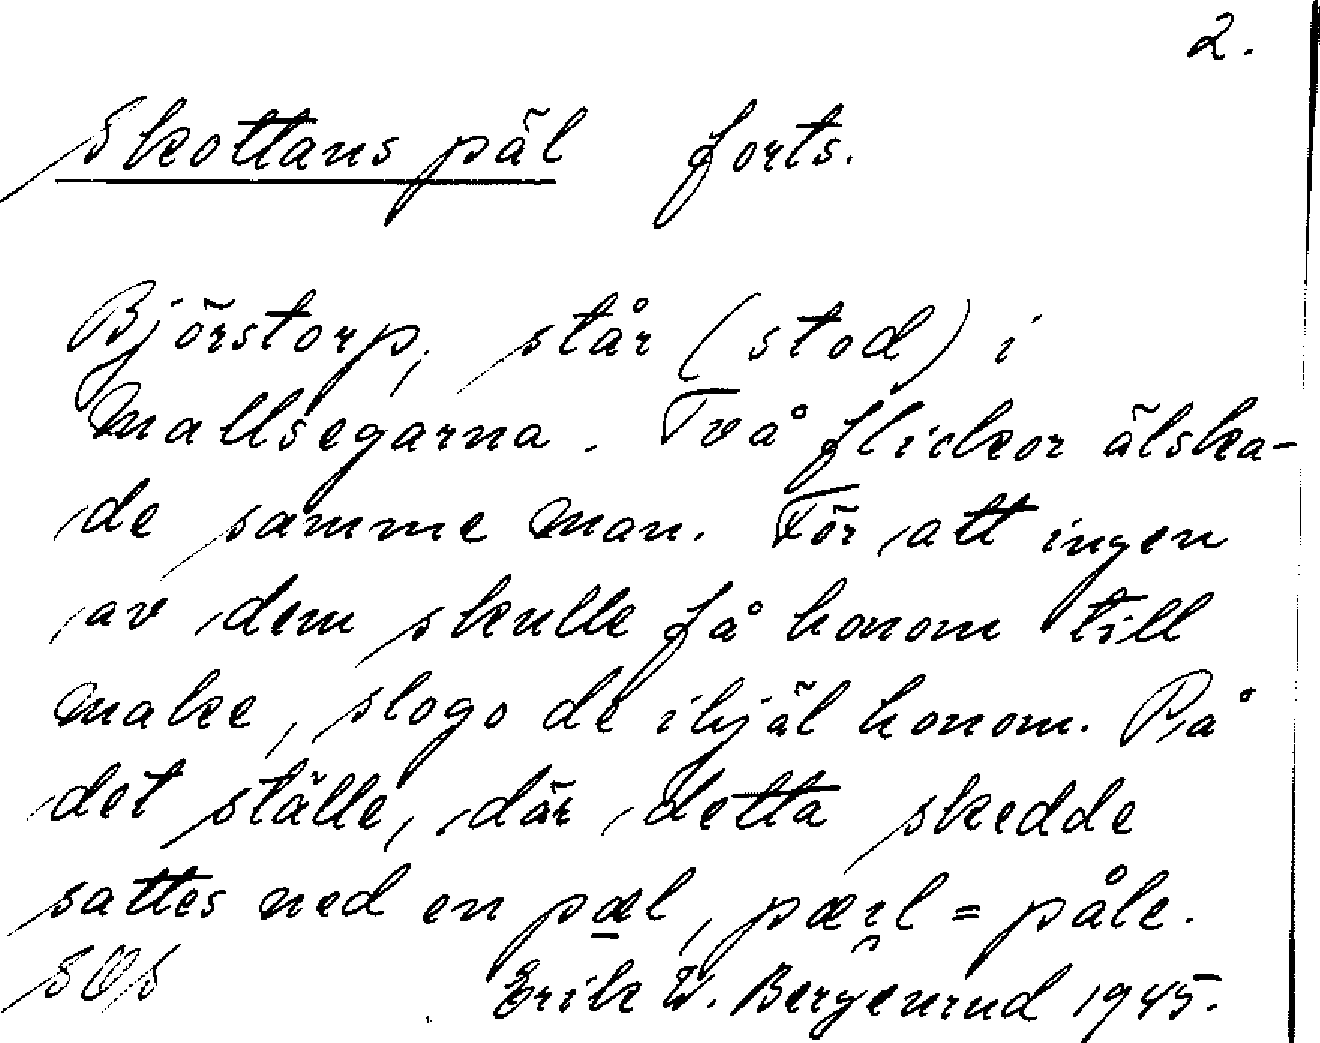 2.
Skottans päl forts.
Björstorp, står (stod) i
Mallsegarna. Två flickor älska-
de samme man. För att ingen
av dem skulle få honom till
make, slogo de ihjäl honom. På
det ställe, där detta skedde
sattes ned en pæl, pæil = påle.
SOS Erik W. Bergenrud 1945.